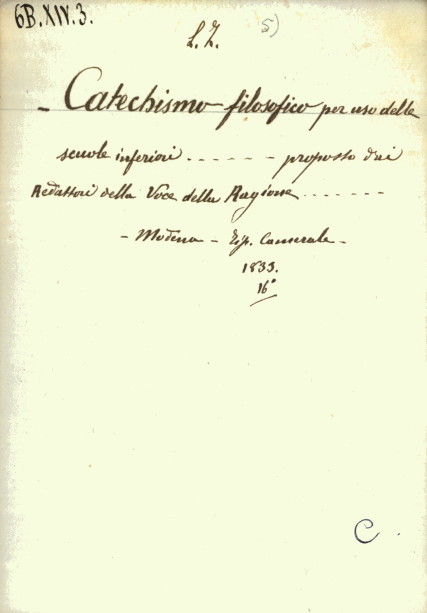 6B.XIV.3.
5)
L. Z.
- Catechismo filosofico per uso delle
scuole inferiori ------ proposto dai
Redattori della Voce della Ragione -------
- Modena - Tip. Camerale -
1833.
16°
C.